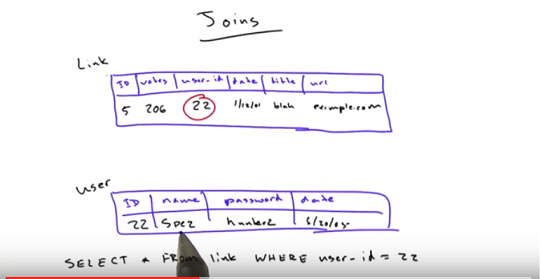 Joins
Link
ID votes user-id date title url
5 206 22 blah example.com
user
ID name password date
22 spez hunter2
SELECT * FROM link WHERE user-id = 22